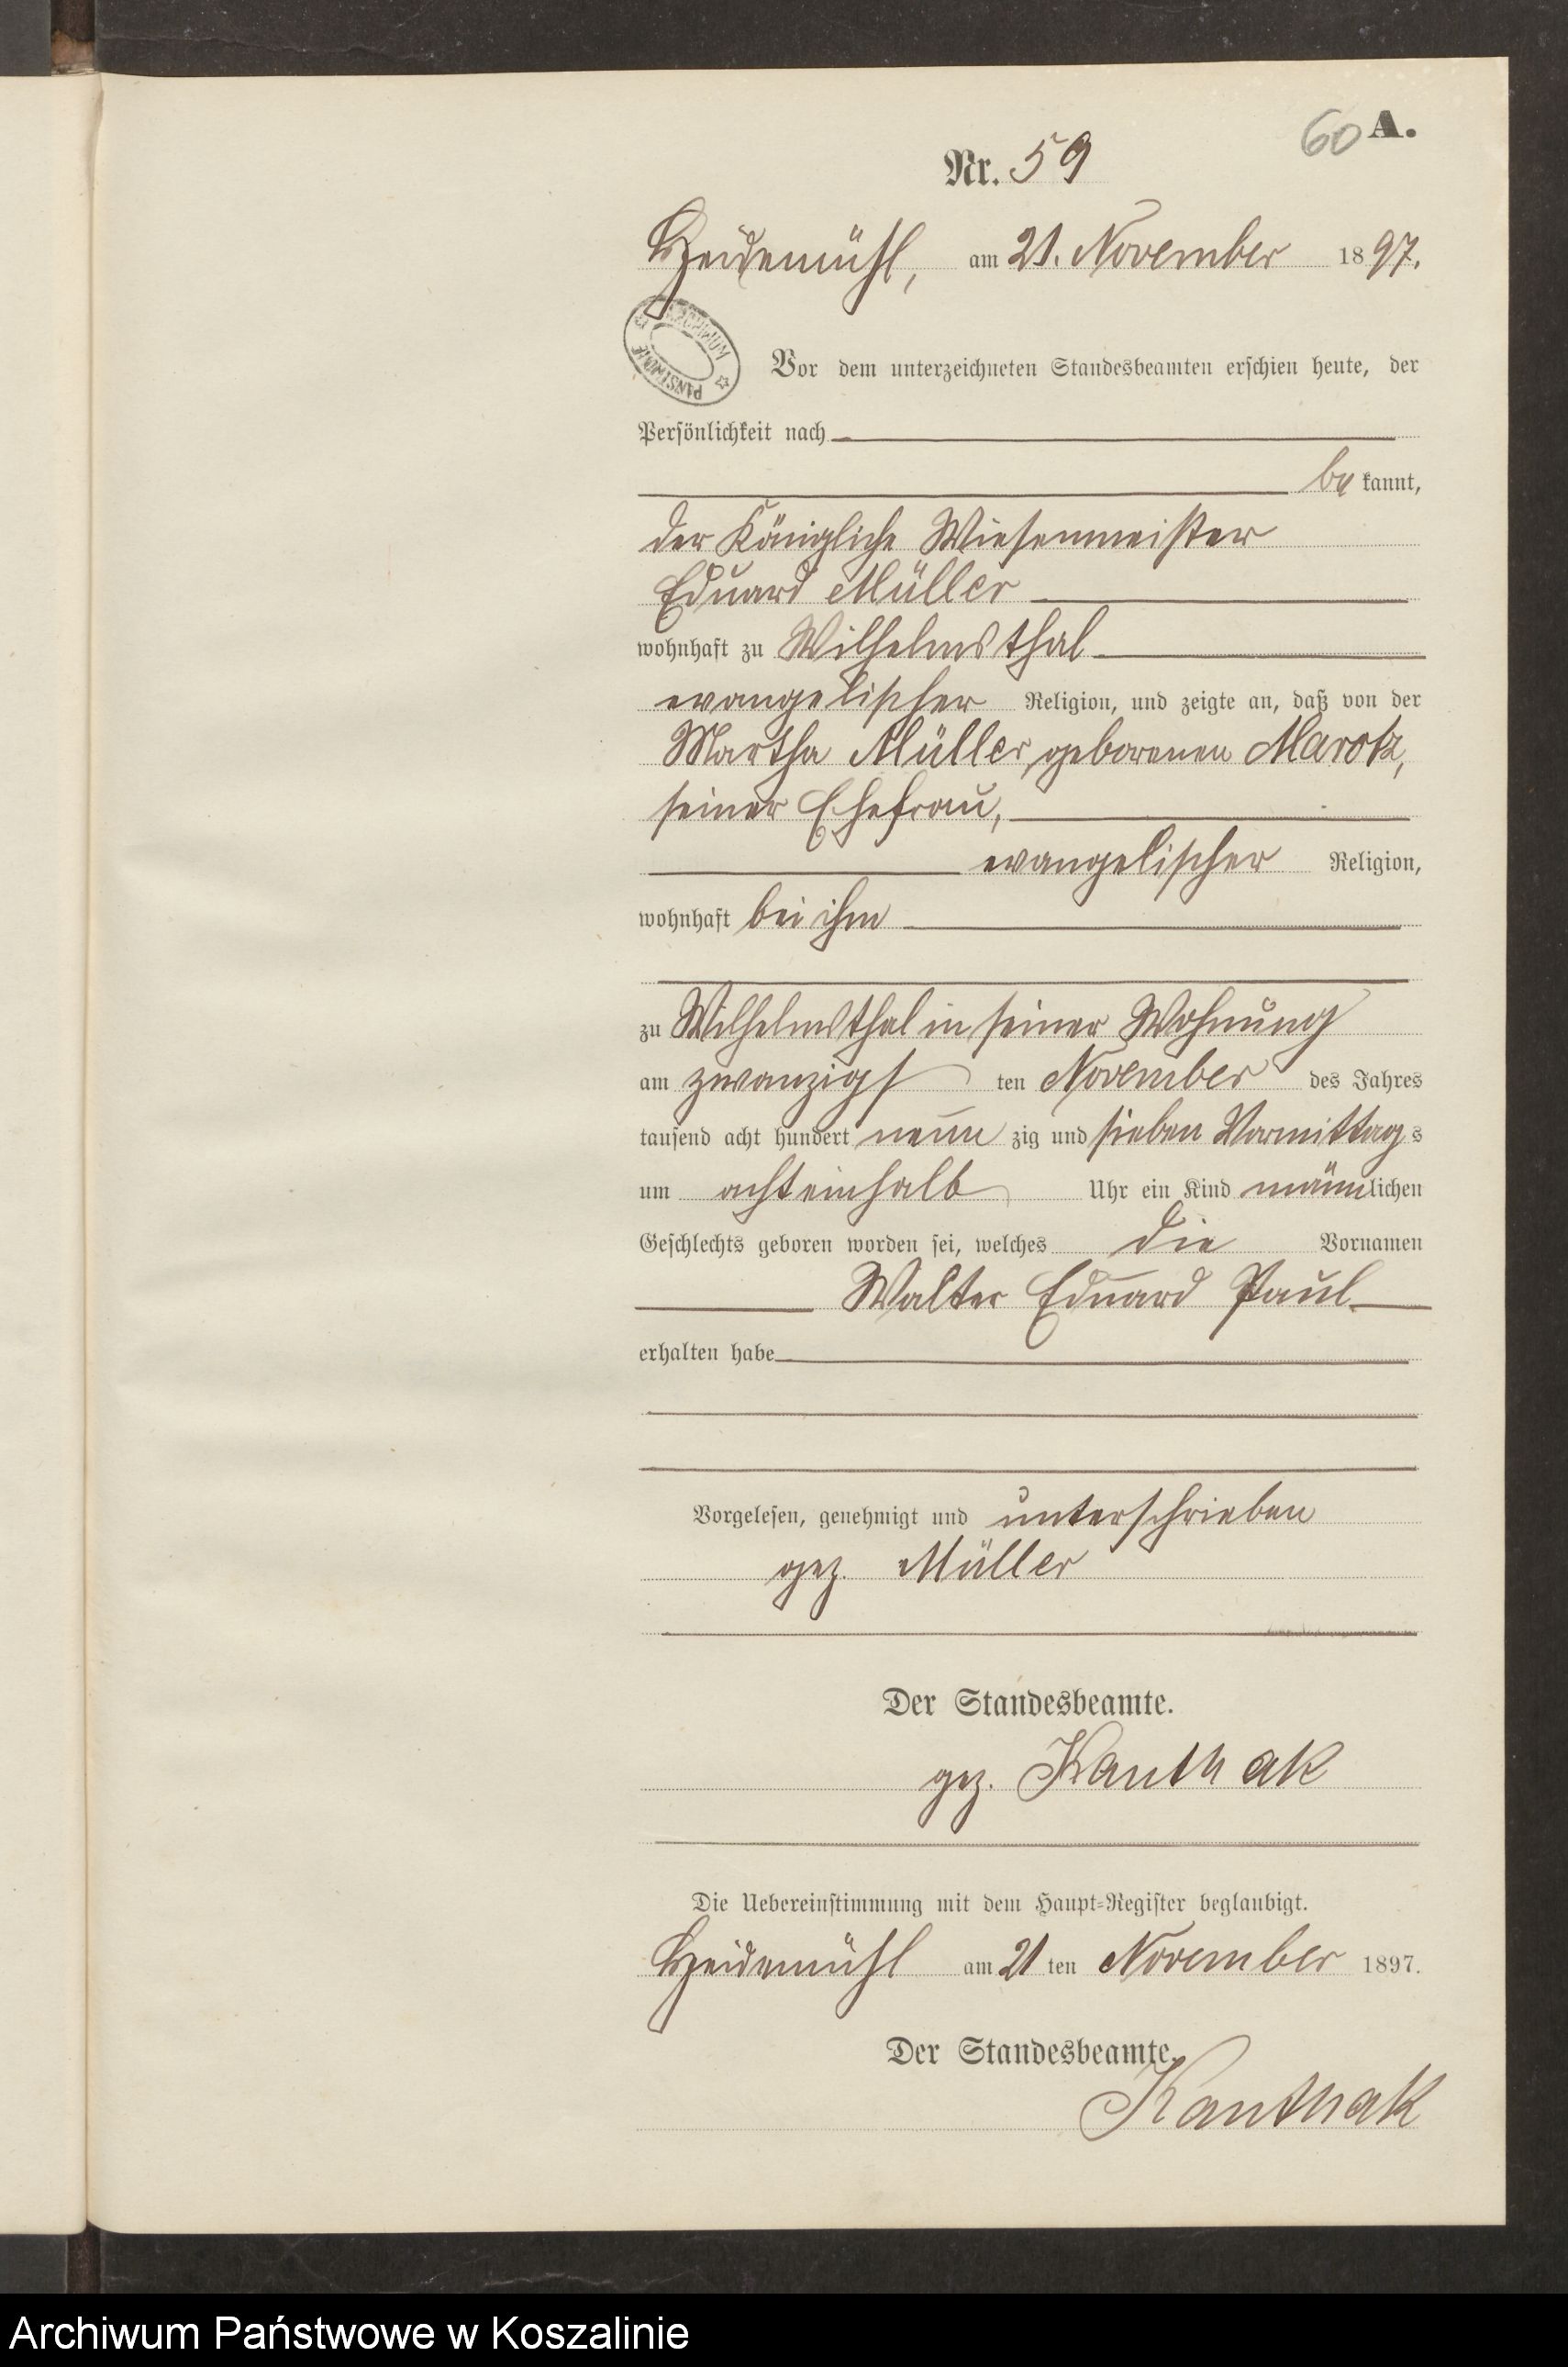 60 A.
Nr. 59
Heidemühl, am 21. November 1897.
ARCHIWUM PAŃSTWOWE
Vor dem unterzeichneten Standesbeamten erschien heute, der
Persönlichkeit nach
be kannt,
der Königliche Wiesenmeister
Eduard Müller
wohnhaft zu Wilhelmsthal
evangelischer Religion, und zeigte an, daß von der
Martha Müller, geborenen Marotz,
seiner Ehefrau,
evangelischer Religion,
wohnhaft bei ihm
zu Wilhelmsthal in seiner Wohnung
am zwanzigs ten November des Jahres
tausend acht hundert neun zig und sieben Vormittag s
um achteinhalb Uhr ein Kind männlichen
Geschlechts geboren worden sei, welches die Vornamen
Walter Eduard Paul
erhalten habe
Vorgelesen, genehmigt und unterschrieben
gez. Müller
Der Standesbeamte.
gez. Kanthak
Die Uebereinstimmung mit dem Haupt-Register beglaubigt.
Heidemühl am 21 ten November 1897.
Der Standesbeamte.
Kanthak
Archiwum Państwowe w Koszalinie